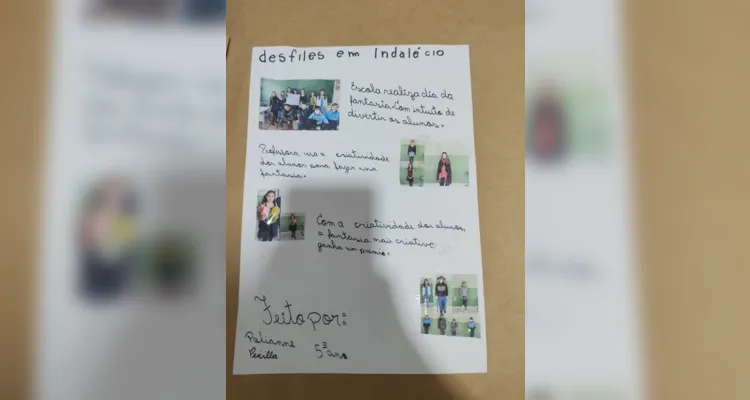 desfiles em Indalécio
Escola realiza dia da
fantasia. Com intuito de
divertir os alunos.
Professora usa a criatividade
dos alunos para fazer uma
fantasia.
Com a criatividade dos alunos,
a fantasia mais criativo
ganha um
Feito por:
5³ ano